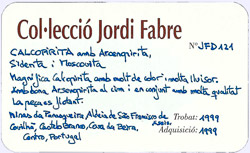 Col·lecció Jordi Fabre
Nº JFD121
CALCOPIRITA amb Arsenopirita,
Siderita i Moscovita
Magnífica Calcopirita amb molt de color i molta lluïsor.
Amb bona Arsenopirita al cim i en conjunt amb molta qualitat
La peça es flotant.
Minas da Panasqueira, Aldeia de São Francisco de
Covilhã, Castelo Branco, Cova da Beira,
Centro, Portugal
Trobat: 1999
Adquisició: 1999